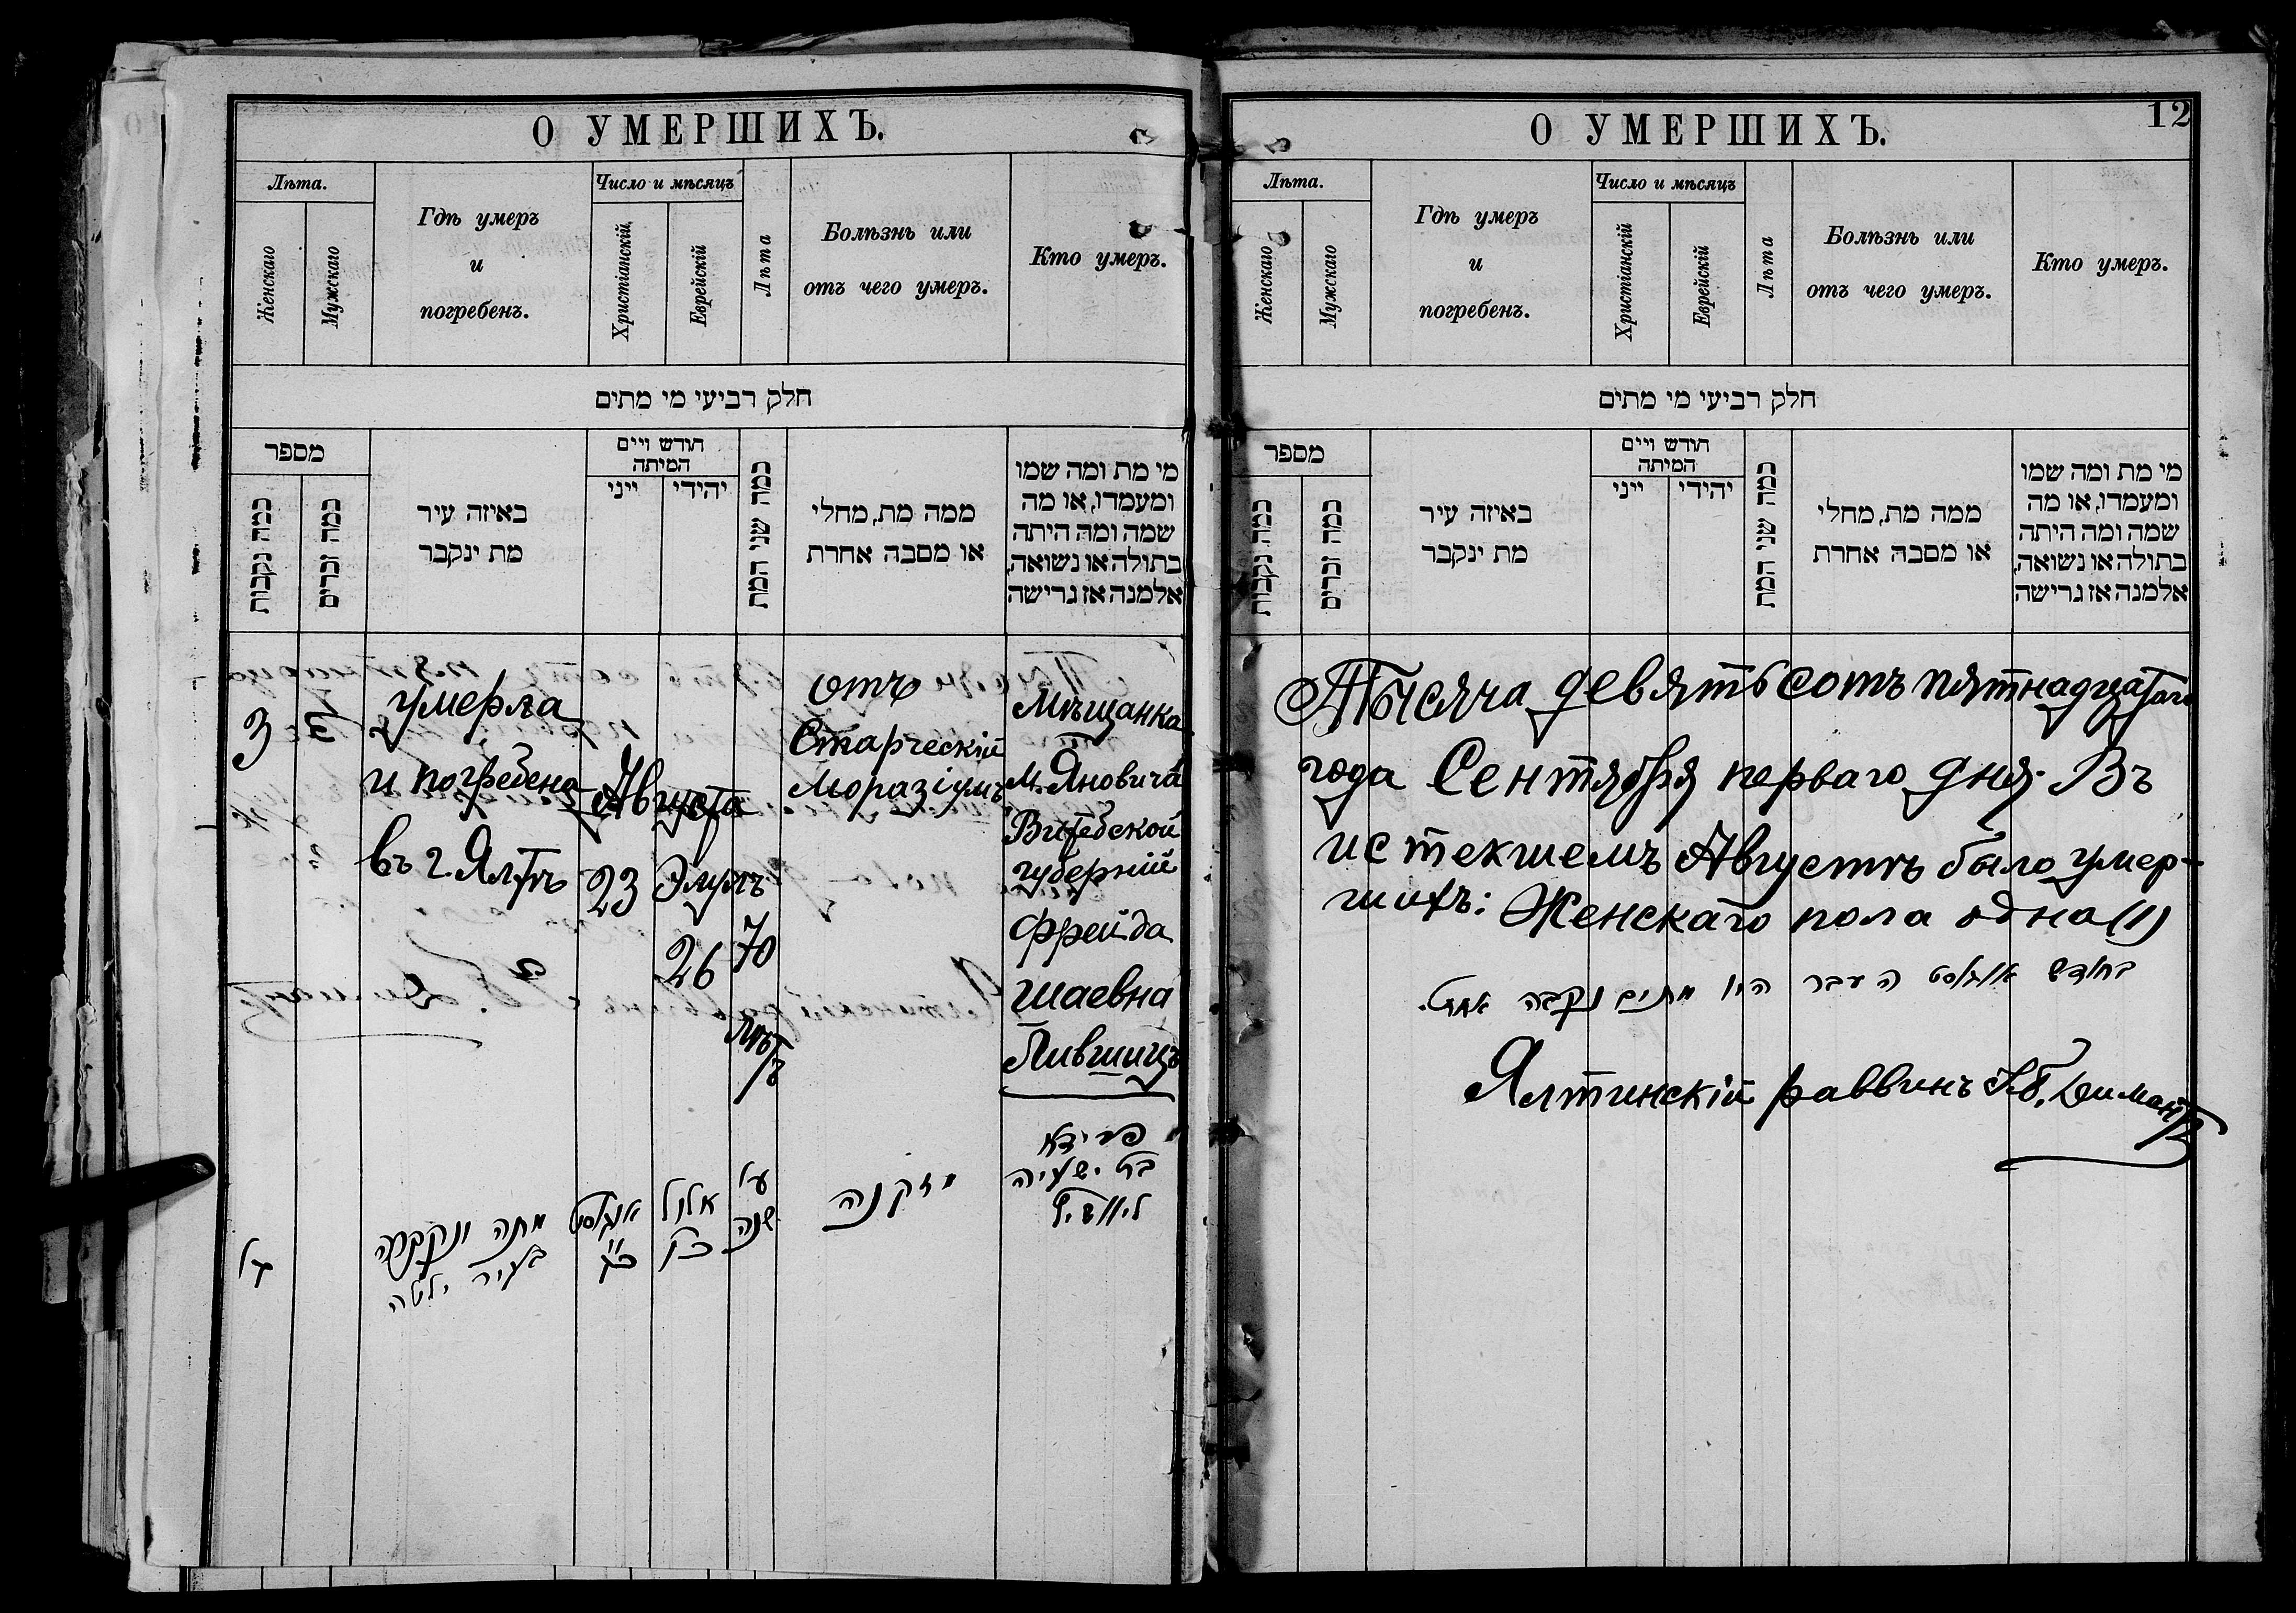 О УМЕРШИХЪ.
Лѣта.
Женскаго
Мужскаго
Гдѣ умеръ
и
погребенъ.
Число и мѣсяцъ
Христіанскій
Еврейскій
Лѣта
Болѣзнь или
отъ чего умеръ.
Кто умеръ.
חלק רביעי מי מתים
מספר
כמה נקבות
כמה זכרים
באיזה עיר
מת ינקבר
חודש ויים
המיתה
ייני
יהודי
כמה שני המת
ממה מת, מחלי
או מסבה אחרת
מי מת ומה שמו
ומעמדו, או מה
שמה ומה היתה
בתולה או נשואה,
אלמנה אז גרישה
3
умерла
и погребена
въ г. Ялтѣ
Августа
23
Элулъ
26
70
лѣтъ
отъ
Старческій
Моразіумъ
Мѣщанка
м. Яновича
Витебской
губерніи
Фрейда
Шаевна
Лившицъ
מתה ונקברה
בעיר ילטה
אוגוסט
כ״ג
אלול
כ״ו
ע׳
שנה
מזקנה
פריידא
בת ישעיה
ליוושיץ
12
О УМЕРШИХЪ.
Лѣта.
Женскаго
Мужскаго
Гдѣ умеръ
и
погребенъ.
Число и мѣсяцъ
Христіанскій
Еврейскій
Лѣта
Болѣзнь или
отъ чего умеръ.
Кто умеръ.
חלק רביעי מי מתים
מספר
כמה נקבות
כמה זכרים
באיזה עיר
מת ינקבר
חודש ויים
המיתה
ייני
יהודי
כמה שני המת
ממה מת, מחלי
או מסבה אחרת
מי מת ומה שמו
ומעמדו, או מה
שמה ומה היתה
בתולה או נשואה,
אלמנה אז גרישה
Тысяча девятьсотъ пятнадцатаго
года Сентября перваго дня. Въ
истекшемъ Августѣ было умер-
шихъ: Женскаго пола одна (1)
בחודש אוגוסט העבר היו מתים נקבה אחת.
Ялтинскій раввинъ Я.б. Димантъ